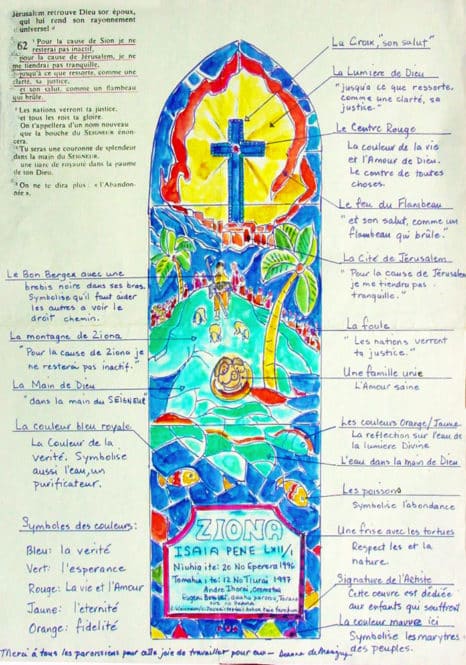 Jérusalem retrouve Dieu son époux,
qui lui rend son rayonnement
universel
62 ¹ Pour la cause de Sion je ne
resterai pas inactif,
pour la cause de Jérusalem, je ne
me tiendrai pas tranquille,
jusqu'à ce que ressorte, comme une
clarté, sa justice,
et son salut, comme un flambeau
qui brûle.
Les nations verront ta justice,
et tous les rois ta gloire.
On t'appellera d'un nom nouveau
que la bouche du SEIGNEUR énon-
cera.
³ Tu seras une couronne de splendeur
dans la main du SEIGNEUR,
une tiare de royauté dans la paume
de ton Dieu.
⁴ On ne te dira plus: « l'Abandon-
née »,
La Croix, "son salut"
La Lumiere de Dieu
"jusqu'a ce que ressorte,
comme une clarté, sa
justice."
Le Centre Rouge
La couleur de la vie
et l'Amour de Dieu.
Le centre de toutes
choses.
Le feu du Flambeau
"et son salut, comme un
flambeau qui brûle."
La Cité de Jérusalem
"Pour la cause de Jérusalem
je me tiendrai pas
tranquille."
La foule
"Les nations verront
ta justice."
Une famille unie
L'Amour saine
Les couleurs Orange/Jaune
La reflection sur l'eau de
la lumiere Divine
L'eau dans la main de Dieu
Les poissons
Symbolise l'abondance
Une frise avec les tortues
Respect les et la
nature.
Signature de l'Artiste
Cette oeuvre est dédiée
aux enfants qui souffrent
La couleur mauve ici
Symbolise les martyres
des peuples.
Le Bon Berger avec une
brebis noire dans ses bras.
Symbolise qu'il faut aider
les autres a voir le
droit chemin.
La montagne de Ziona
"Pour la cause de Ziona je
ne resterai pas inactif."
La Main de Dieu
"dans la main du SEIGNEUR"
La couleur bleu royale
La Couleur de la
vérité. Symbolise
aussi l'eau, un
purificateur.
Symboles des couleurs:
Bleu: la vérité
Vert: l'esperance
Rouge: La vie et l'Amour
Jaune: l'eternité
Orange: fidelité
ZIONA
ISAIA PENE LXII/1
Niuhia ite: 20 No Eperera 1996
Tomahia ite: 12 No Tiurai 1997
Andre Ihorai,
Eugen
Merci à tous les paroissiens pour cette joie de travailler pour eux –